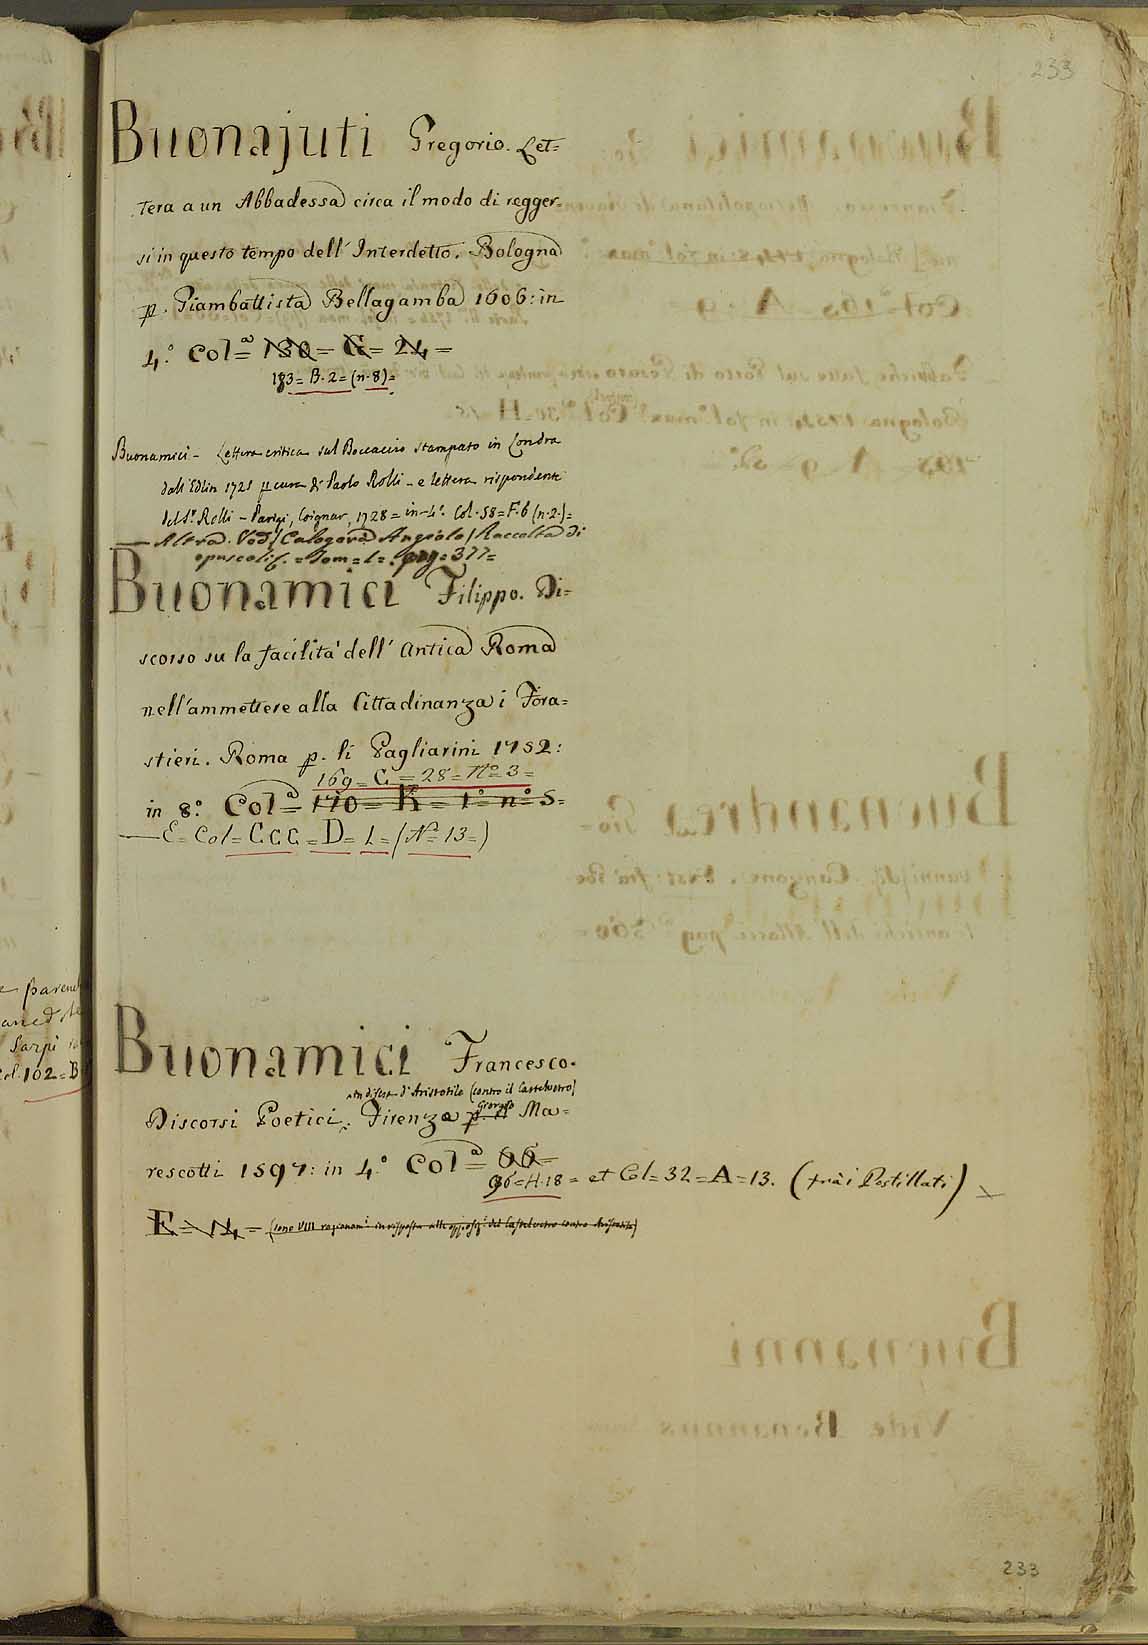 233
Buonajuti Gregorio. Let=
tera a un Abbadessa circa il modo di regger=
si in questo tempo dell' Interdetto. Bologna
p. Giambattista Bellagamba 1606: in
4.° Col.ª= 130= G= 24=
183= B. 2= (n. 8)=
Buonamici - Lettera critica sul Boccaccio stampato in Londra
dall' Edlin 1725 p cura di Paolo Rolli - e lettera rispondente
del S.r Rolli - Parigi, Coignar, 1728= in-4.° Col. 58= F. 6 (n. 2.)=
Altra. Ved/ Calogerà Angiolo/ Raccolta di
opuscoli &. = Tom= 1= . pag= 377=
Buonamici Filippo. Di=
scorso su la facilità dell' antica Roma
nell'ammettere alla Cittadinanza i Fora=
stieri. Roma p. li Pagliarini 1752:
169= C= 28= N° 3=
in 8.° Col.ª= 170= K= 1°= n°= 5=
E= Col= CCC= D= L= (N= 13=)
Buonamici Francesco.
in difesa d'Aristotile (contro il Castelvetro)
Discorsi Poetici. Firenze p. il Giorgio Ma=
rescotti 1597: in 4.° Col.ª= 66=
96= H. 18= et Col= 32= A= 13. (trà i Postillati)
E= N4= (sono VIII ragionam.i in risposta alle opposiz.i del Castelvetro contro Aristotile)
Sarpi
102= B
233